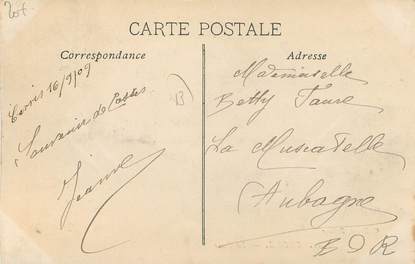 20f
CARTE POSTALE
Correspondance
Adresse
16/9/09
Souvenir de
Jeanne
13
Mademoiselle
Betty Faure
La Muscatelle
Aubagne
B D R